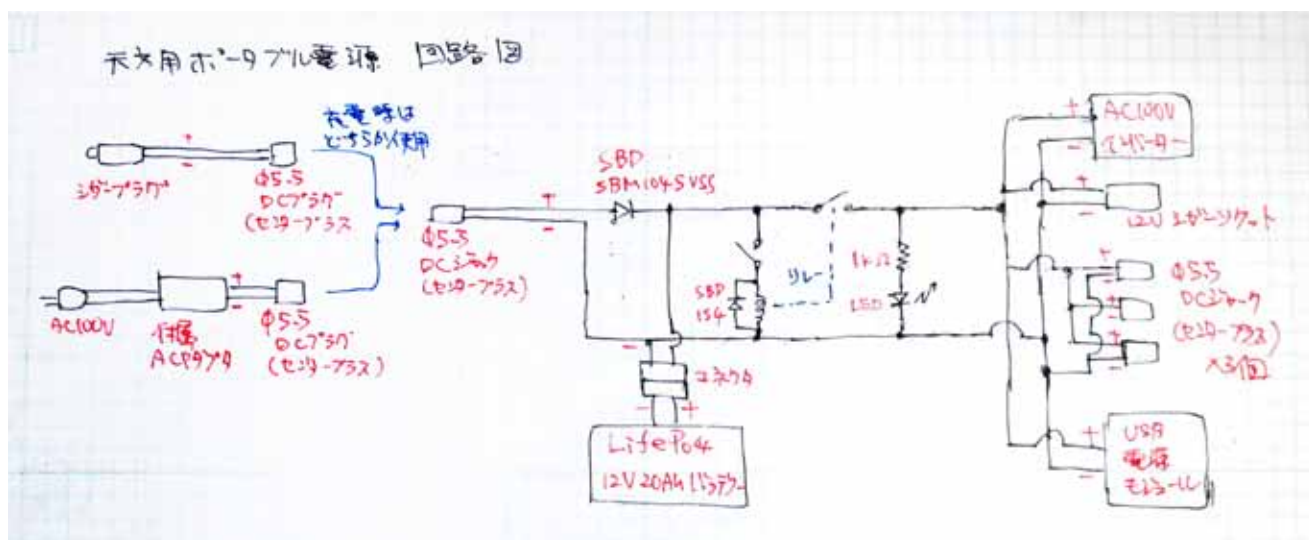 天文用ポータブル電源 回路図
充電時は
どちらか使用
シガープラグ
+
-
Φ5.5
DCプラグ
(センタープラス
AC100V
付属
ACアダプタ
+
-
Φ5.5
DCプラグ
(センタープラス)
Φ5.5
DCジャック
(センタープラス)
+
-
SBD
SBM1045VSS
SBD
1S4
リレー
1kΩ
LED
-
コネクタ
-
+
LifePo4
12V20Ahバッテリー
+
-
AC100V
インバーター
+
-
12Vシガーソケット
+
-
+
-
+
-
Φ5.5
DCジャーク
(センタープラス)
×3個
+
-
USB
電源
モジュール